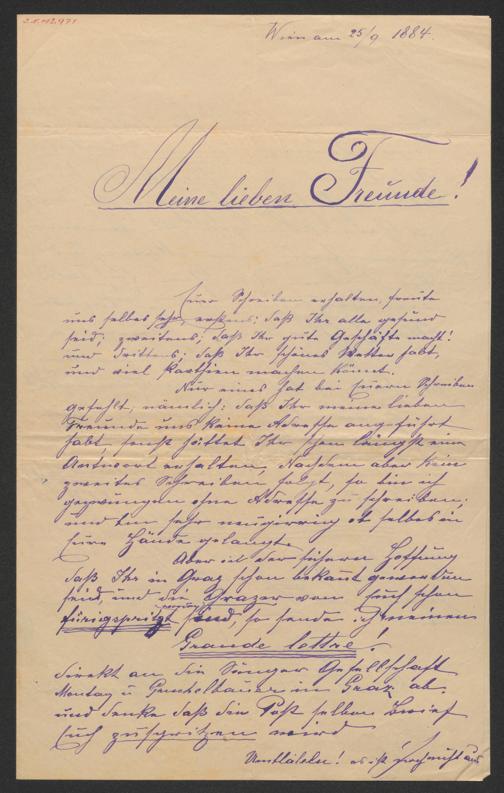 J.N. 112.971
Wien am 25/9 1884.
Meine lieben Freunde!
Euer Schreiben erhalten, freute
uns selbes sehr, erstens: daß Ihr alle gesund
seid, zweitens; daß Ihr gute Geschäfte macht!
und drittens; daß Ihr schönes Wetter habt,
und viel Parthien machen könnt.
Nur eines hat bei Euern Schreiben
gefehlt, nämlich: daß Ihr meine lieben
Freunde uns keine Adresse angeführt
habt, sonst hättet Ihr schon längst eine
Antwort erhalten, Nachdem aber kein
zweites Schreiben folgt, so bin ich
gezwungen ohne Adresse zu schreiben;
und bin sehr neugierig ob selbes in
Eure Hände gelangt.
Aber in der sichern Hoffnung
daß Ihr in Graz schon bekannt geworden
seid, und die Grazer von Euch schon
sind, so sende ich meinen
Grande lettre!
direkt an die Sänger Gesellschaft
Montag u in Graz ab,
und denke daß die Post selben Brief
Euch zuspritzen wird
Umblateln! es ist noch nicht aus